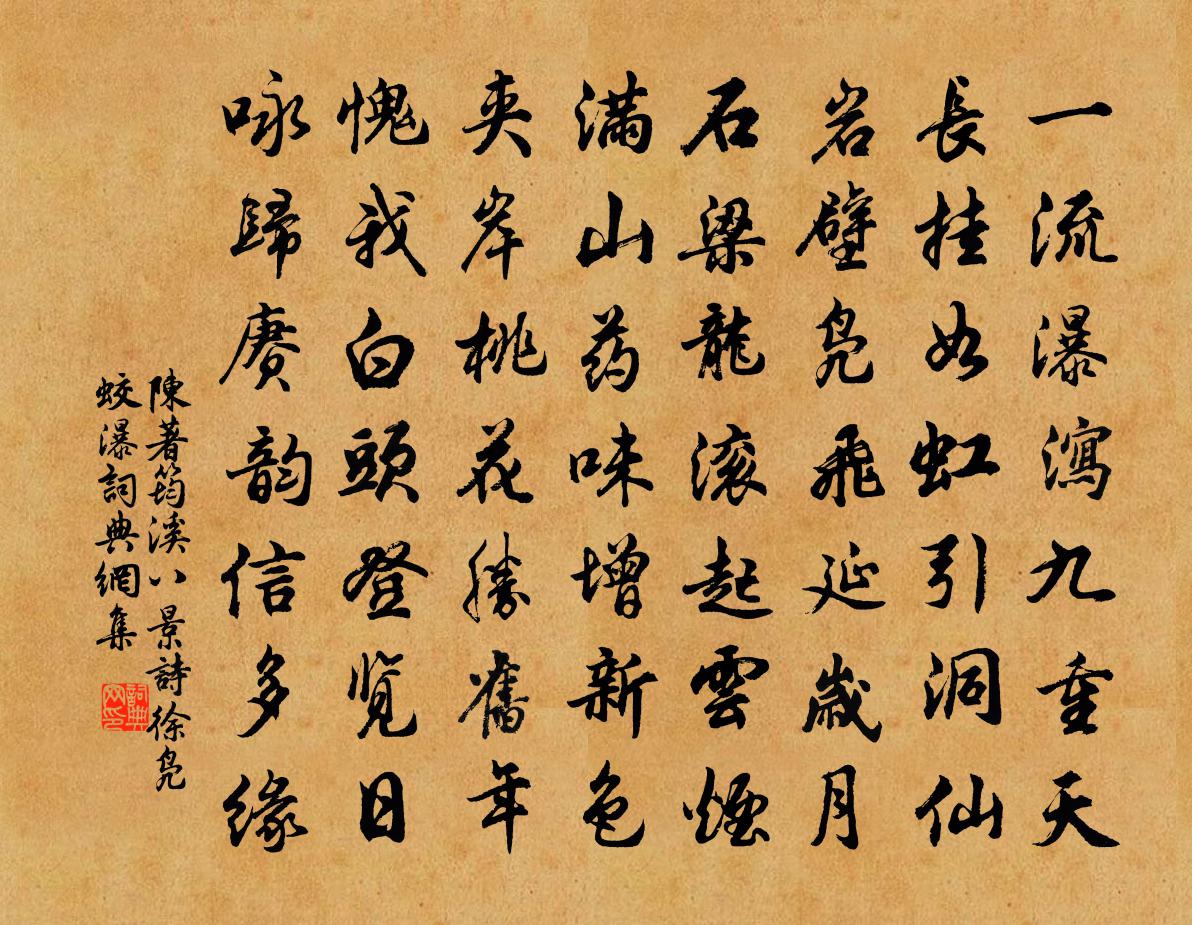 一流瀑瀉九重天
長挂如虹引洞仙
岩壁鳧飛延歲月
石梁龍滚起雲煙
滿山药味增新色
夾岸桃花勝舊年
愧我白頭登览日
咏歸赓韵信多緣
陳著筠溪八景詩徐鳧
蛟瀑詞典網集
詞典
网印